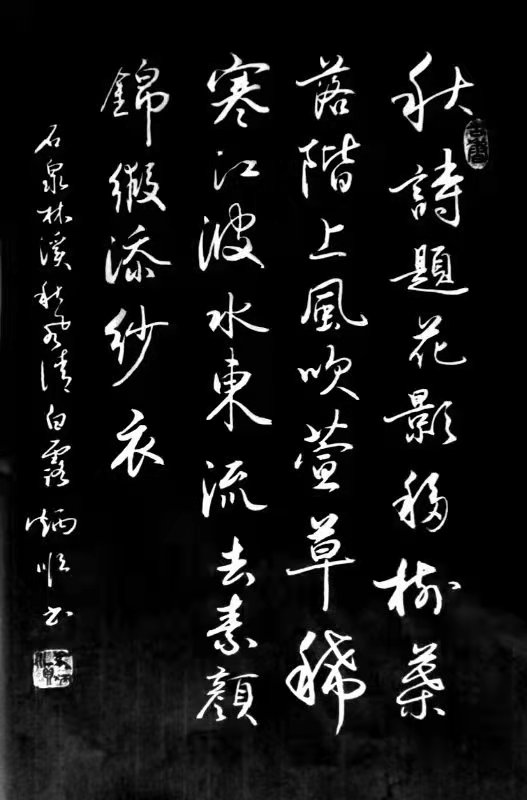 秋詩題花影移樹葉
落階上風吹萱草稀
寒江波水東流去素顏
錦緞添紗衣
石泉林溪秋風清白露炳順书